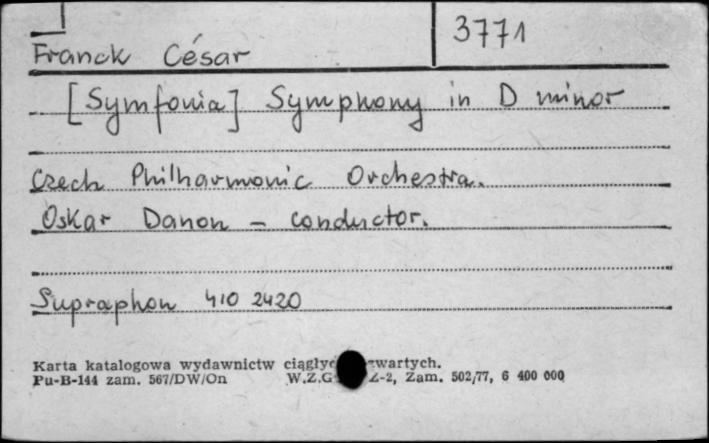 3771
Franck César
[Symfonia] Symphony in D minor
Czech Philharmonic Orchestra.
Oskar Danon - conductor.
Supraphon 410 2420
Karta katalogowa wydawnictw
Pu-B-144 zam. 567/DW/On Zam. 502/77, 6 400 000